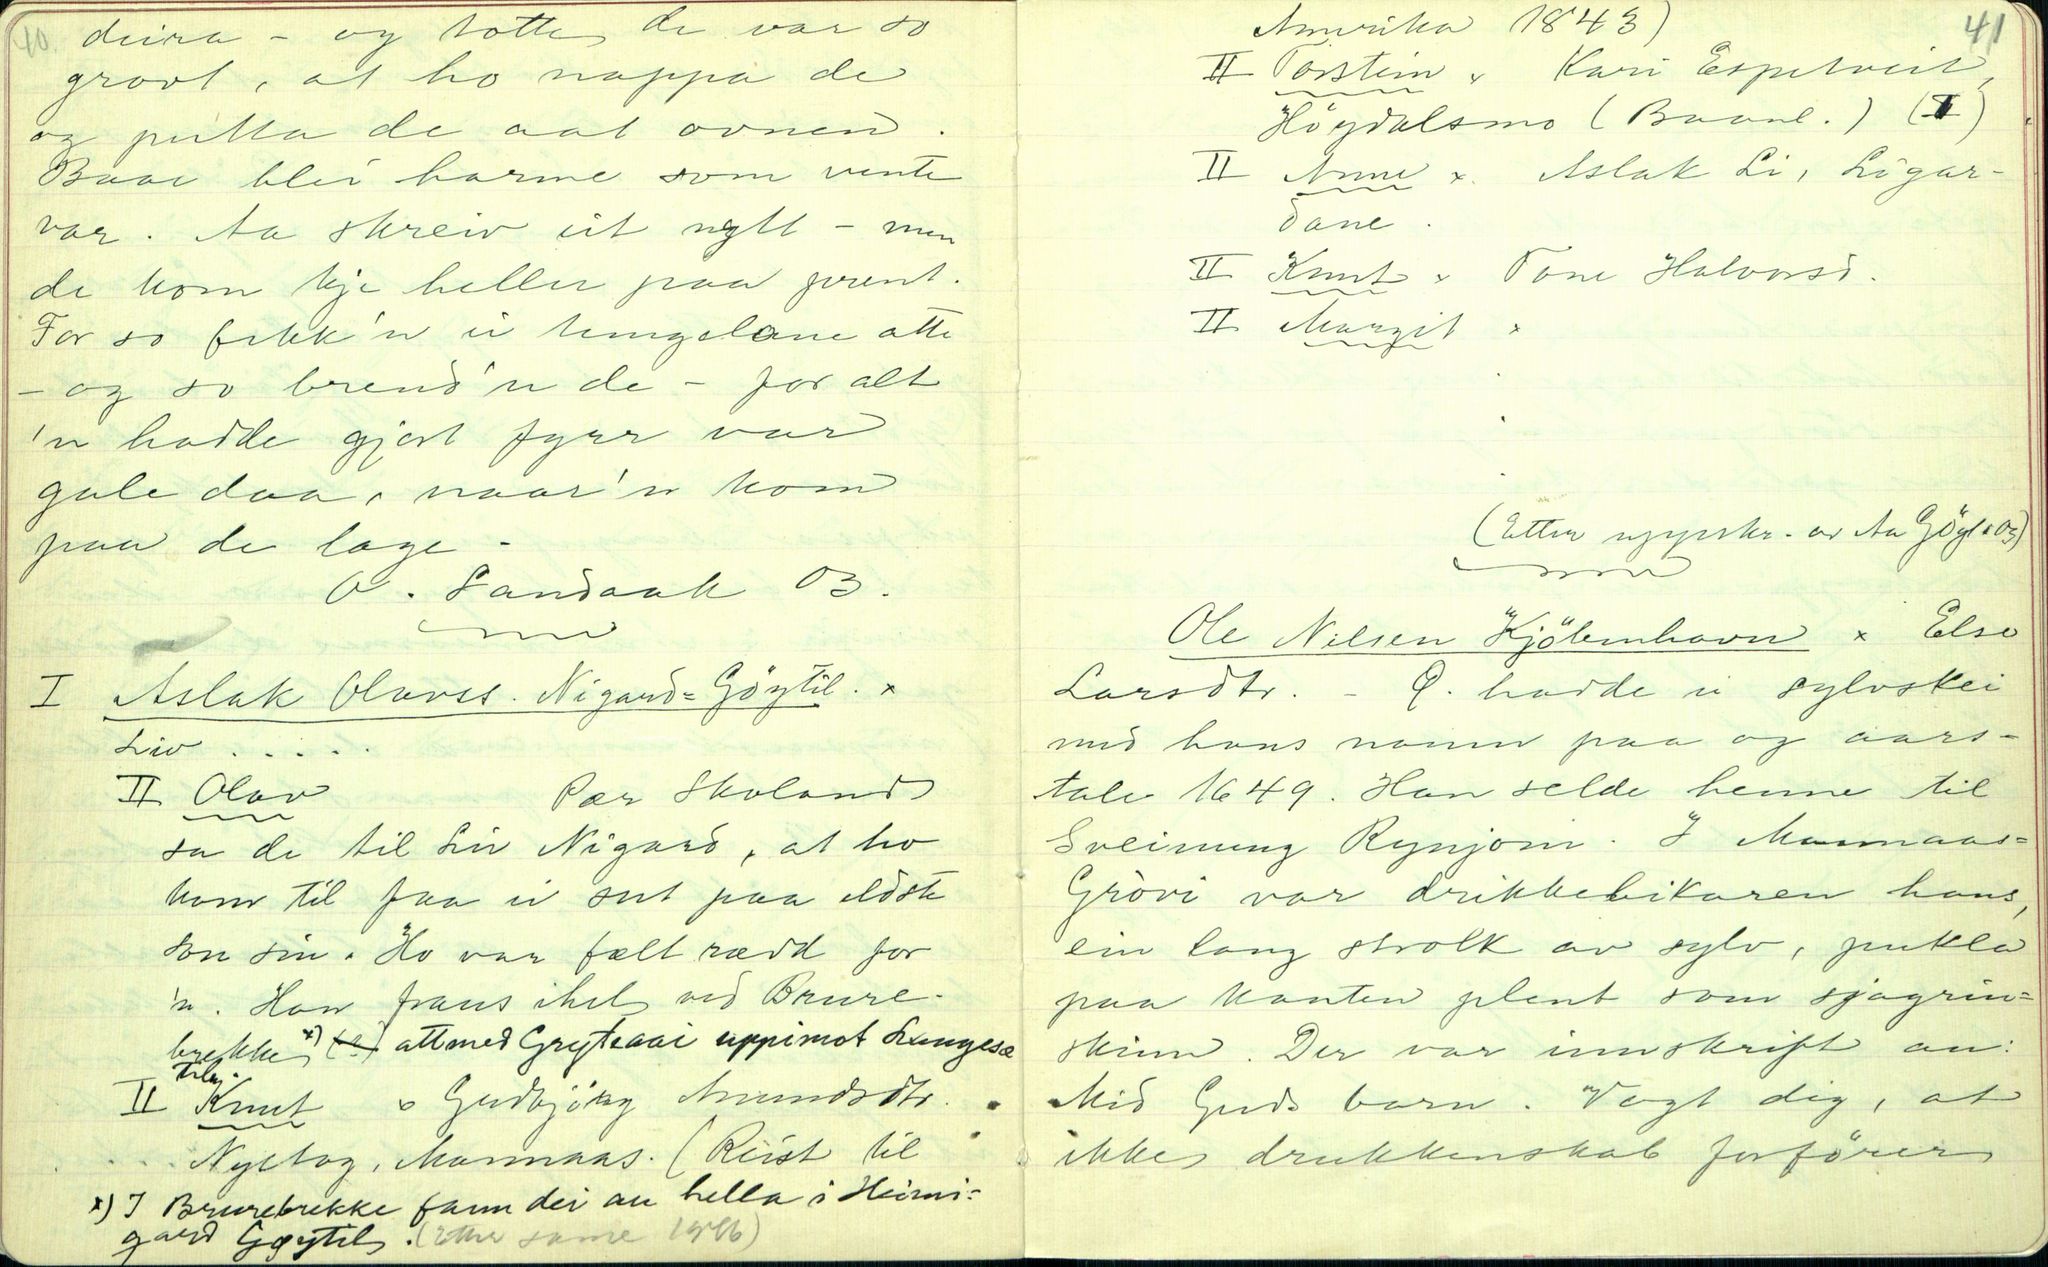 40.
deira - og totte de var so
grovt, at ho nappa de
og putta de aat ovnen.
Baae blei harme som vente
var. Aa skreiv eit nytt - men
de kom kje heller paa prent.
For so fekk'n ei tungelane atte
- og so brend'n de - for alt
'n hadde gjort fyrr var
gale daa, naar'n kom
paa de lage -
O. Sandaak 03.
I Aslak Olavss. Nigard=Göytil. x
Liv . . . . .
II Olav Pær Skoland
sa de til Liv Nigard, at ho
kom til faa ei sut paa eldste
son sin. Ho var fælt rædd for
'n. Han fraus ihel ved Brure-
brekke x) attmed Grytaai uppimot Langesæ
II Knut x Gudbjörg Amundsdtr.
. . . . Nyltog, Mannaas. (Reist til
x) I Brurebrekke fann dei au hella i Heimi=
gard Gøytil. (Etter same 1946)
41
Amerika 1843)
II Torstein x Kari Espetveit,
Höydalsmo (Baanl.) (I)
II Anne x Aslak Li, Ligar-
dane.
II Knut x Tone Halvorsd.
II Margit x
(Etter uppskr. av Aa Göyt. 03)
Ole Nilsen Kjöbenhavn x Else
Larsdtr. - O. hadde ei sylvskei
med hans namn paa og aars-
tale 1649. Han selde henne til
Sveinung Rynjom. I Mannaas=
Gròvi var drikkebikaren hans,
ein lang strolk av sylv, pukla
paa kanten plent som sjagrin=
skinn. Der var innskrift au:
Mid Guds barn. Vagt dig, at
ikke drukkenskab forförer